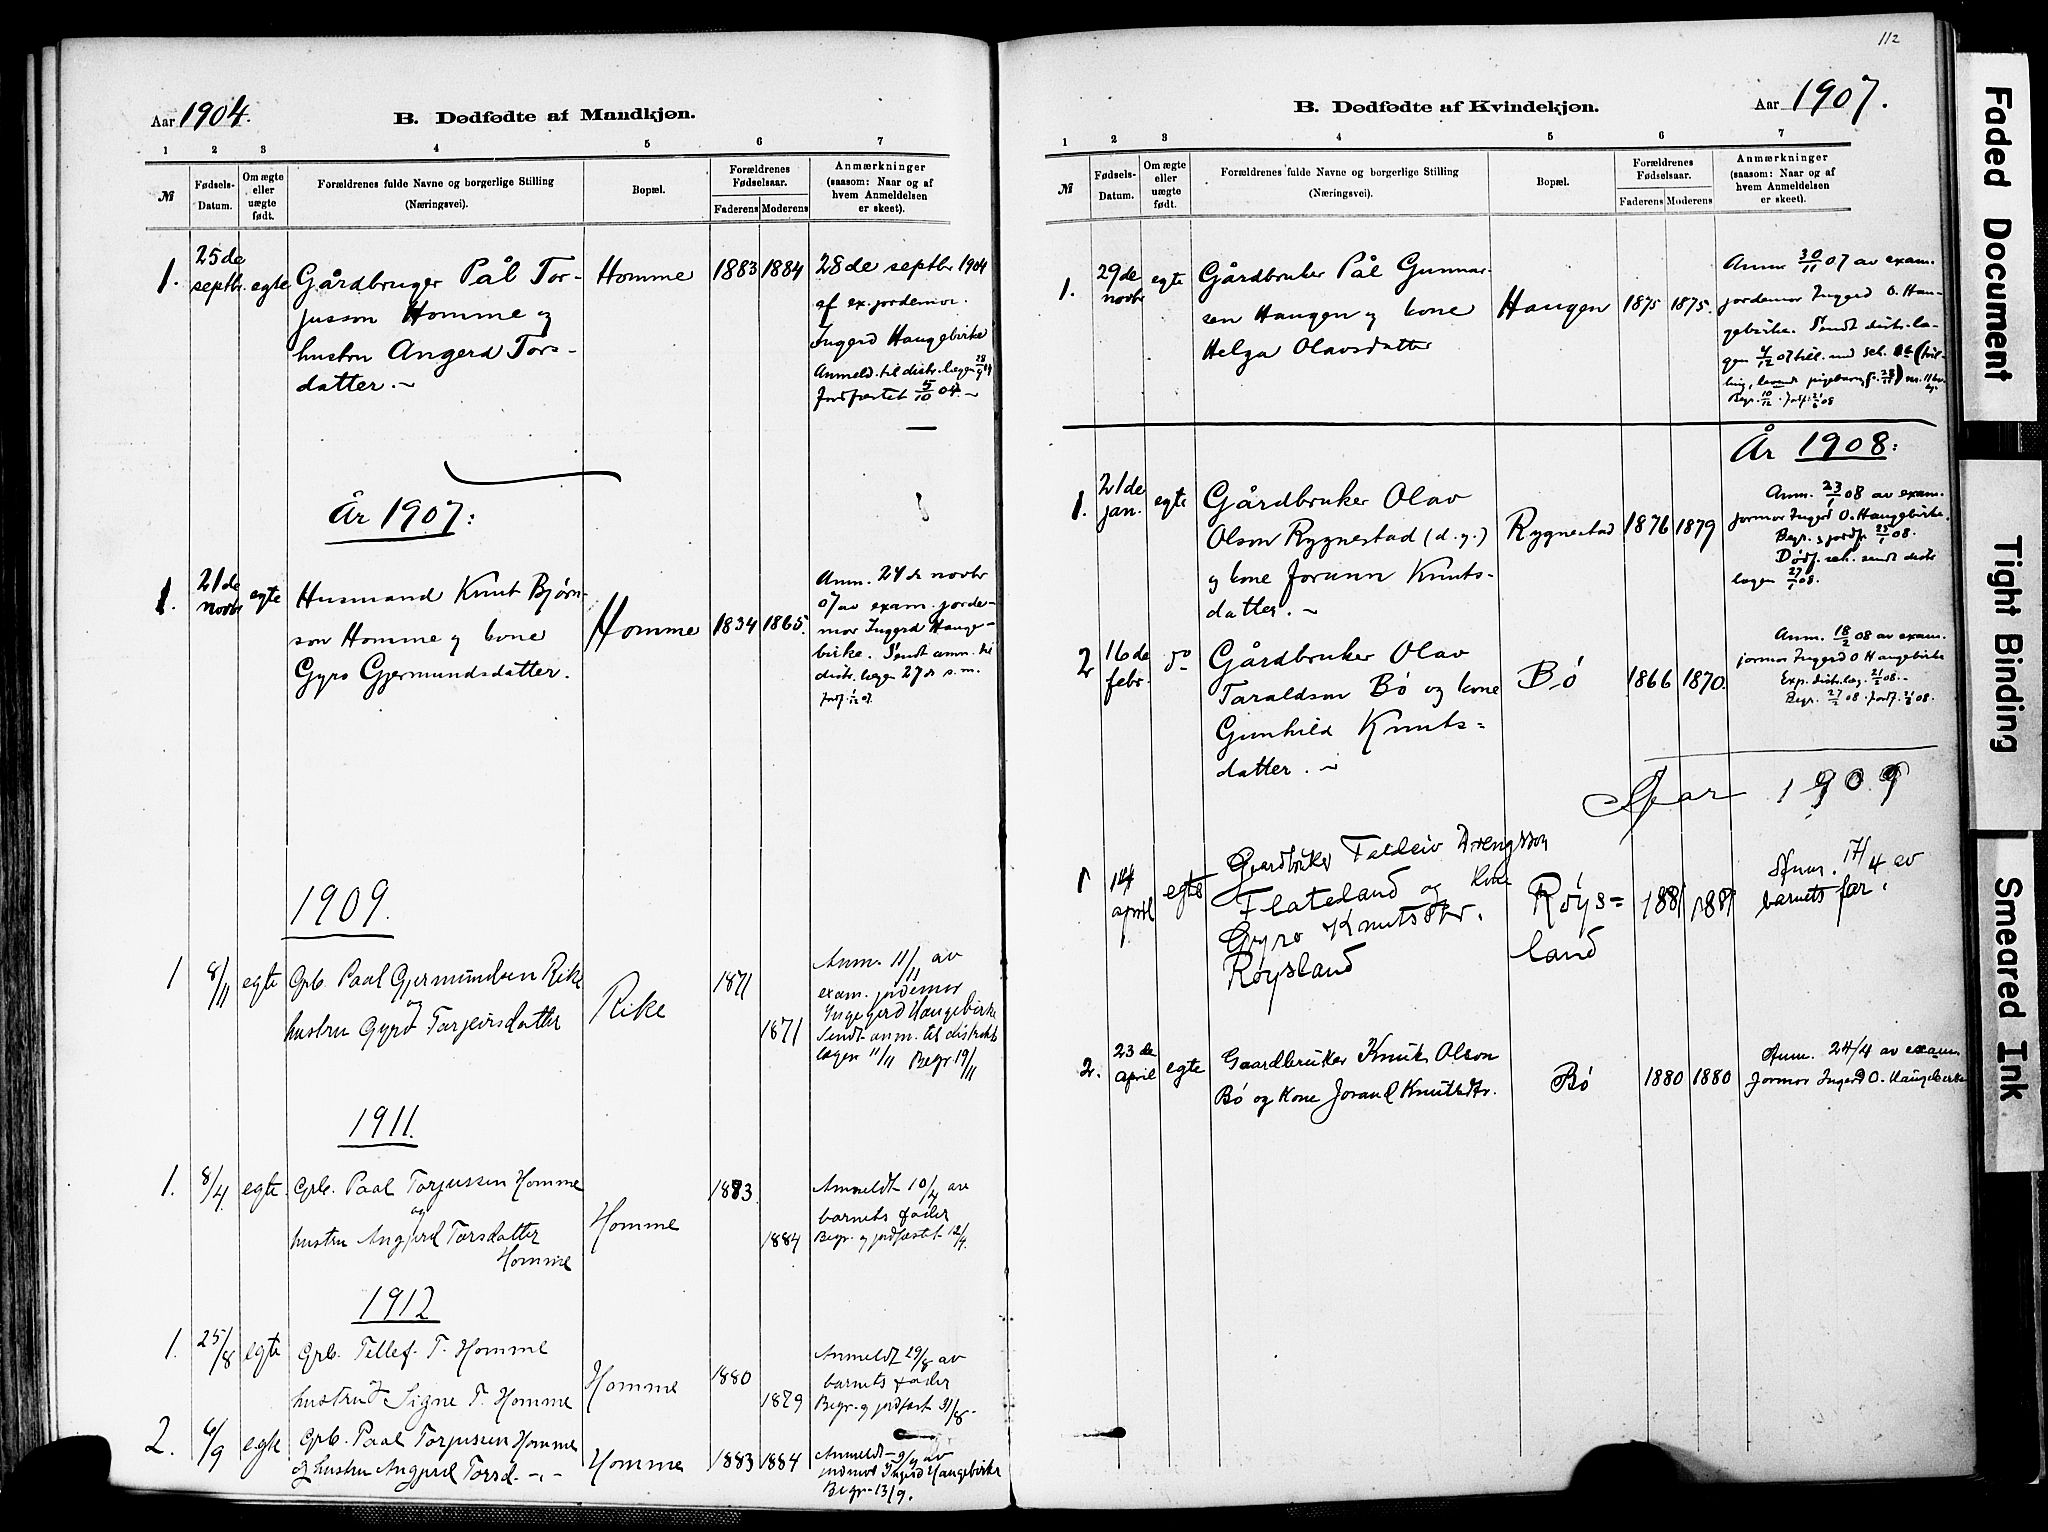 Aar 1904.
B. Dødfødte af Mandkjøn.
1 2 3 4 5 6 7
№
Fødsels-Datum.
Om ægte eller uægte født.
Forældrenes fulde Navne og borgerlige Stilling
(Næringsvei).
Bopæl.
Forældrenes Fødselsaar.
Faderens Moderens
Anmærkninger
(saasom: Naar og af
hvem Anmeldelsen
er skeet).
1. 25de septbr. egte
Gårdbruger Pål Tor-
jusson Homme og
hustru Angerd Tors-
datter. ~
Homme 1883 1884
28de septbr 1904
af ex. jordemor.
Ingerd Haugebirke
Anmeld. til distr. lægen 28/9 04
Jordfæstet 5/10 04. ~
År 1907:
1. 21de novbr egte
Husmand Knut Bjørn-
son Homme og kone
Gyro Gjermundsdatter.
Homme 1834 1865.
Anm. 24de novbr
07 av exam. jorde-
mor Ingerd Hauge-
birke. Sendt anm. til
distr. lægen 27de s. m.
Jordf. 1/12 07.
1909.
1 8/11 egte
Grb. Paal Gjermundsen Rike
og
hustru Gyro Tarjeivsdatter
Rike 1871
1871
Anm. 11/11 av
exam. jordemor
Ingegerd Haugebirke
Sendt anm. til distrikts
lægen 11/11 Begr 19/11
1911.
1. 8/4. egte.
Grb. Paal Torjussen Homme
og
hustru Angjerd Torsdatter
Homme
Homme 1883.
1884
Anmeldt 10/4 av
barnets fader
Begr. og jordfæstet 12/4.
1912
1. 25/8 egte
Grb. Tellef T. Homme
hustru Signe T. Homme
Homme 1880
1879
Anmeldt 29/8 av
barnets fader
Begr. og jordfæst 31/8.
2. 6/9 egte
Grb. Paal Torjussen Homme
og hustru Angjerd Torsd. -,-
Homme 1883 1884
Anmeldt 9/9 av
jordemor Ingerd Haugebirke
Begr. 13/9.
112
B. Dødfødte af Kvindekjøn.
Aar 1907.
1 2 3 4 5 6 7
№
Fødsels-Datum.
Om ægte eller uægte født.
Forældrenes fulde Navne og borgerlige Stilling
(Næringsvei).
Bopæl.
Forældrenes Fødselsaar.
Faderens Moderens
Anmærkninger
(saasom: Naar og af
hvem Anmeldelsen
er skeet).
1. 29de novbr egte
Gårdbruker Pål Gunnar-
sen Haugen og kone
Helga Olavsdatter
Haugen 1875 1875.
Anm 30/11 07 av exam-
jordemor Ingerd O. Hau-
gebirke. Sendt distr. læ-
gen
Begr. 10/12. Jordf. 21/6 08
År 1908:
1. 21de jan. egte
Gårdbruker Olav
Olson Rygnestad (d. y.)
og kone Jorunn Knuts-
datter. ~
Rygnestad 1876 1879
Anm. 23/1 08 av exam.
jormor Ingerd O. Haugebirke.
Begr. og jordf. 25/1 08.
Dødf. sch. sendt distr
lægen 27/1 08.
2 16de febr. do
Gårdbruker Olav
Taraldson Bø og kone
Gunhild Knuts-
datter. ~
Bø 1866 1870.
Anm. 18/2 08 av exam.
jormor Ingerd O Haugebirke
Exp. distr. læg. 21/2 08.
Begr. 27/2 08. Jordf. 21/6 08.
Aar 1909
1 14 april egte
Gardbruker Taldeiv Drengsson
Flateland og kone
Gyro Knutsdtr.
Røysland
Røys-
land
1881 1881
Anm. 17/4 av
barnets far.
2. 23de april egte
Gaardbruker Knut Olson
Bø og Kone Joraud Knutsdtr.
Bø 1880 1880
Anm. 24/4 av exam.
Jormor Ingerd O. Haugebirke
Faded Document
Tight Binding
Smeared Ink